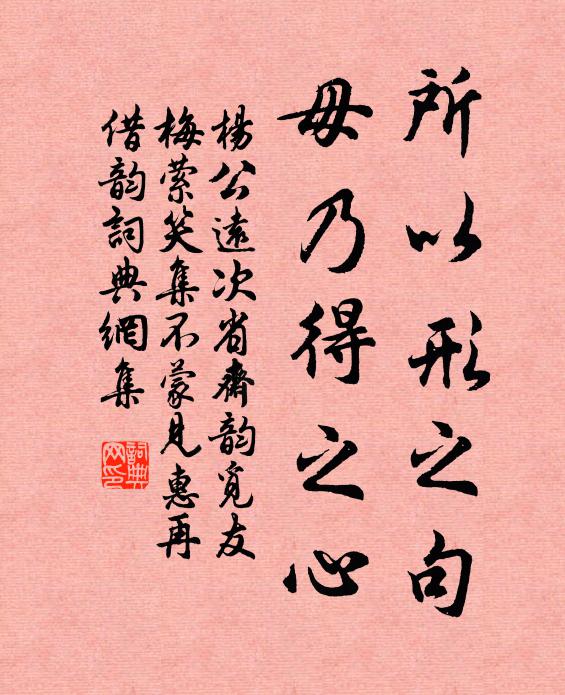 所以形之句
毋乃得之心
楊公遠次省齋韵覓友
梅縈笑集不蒙見惠再
借韵詞典網集
詞典
网印